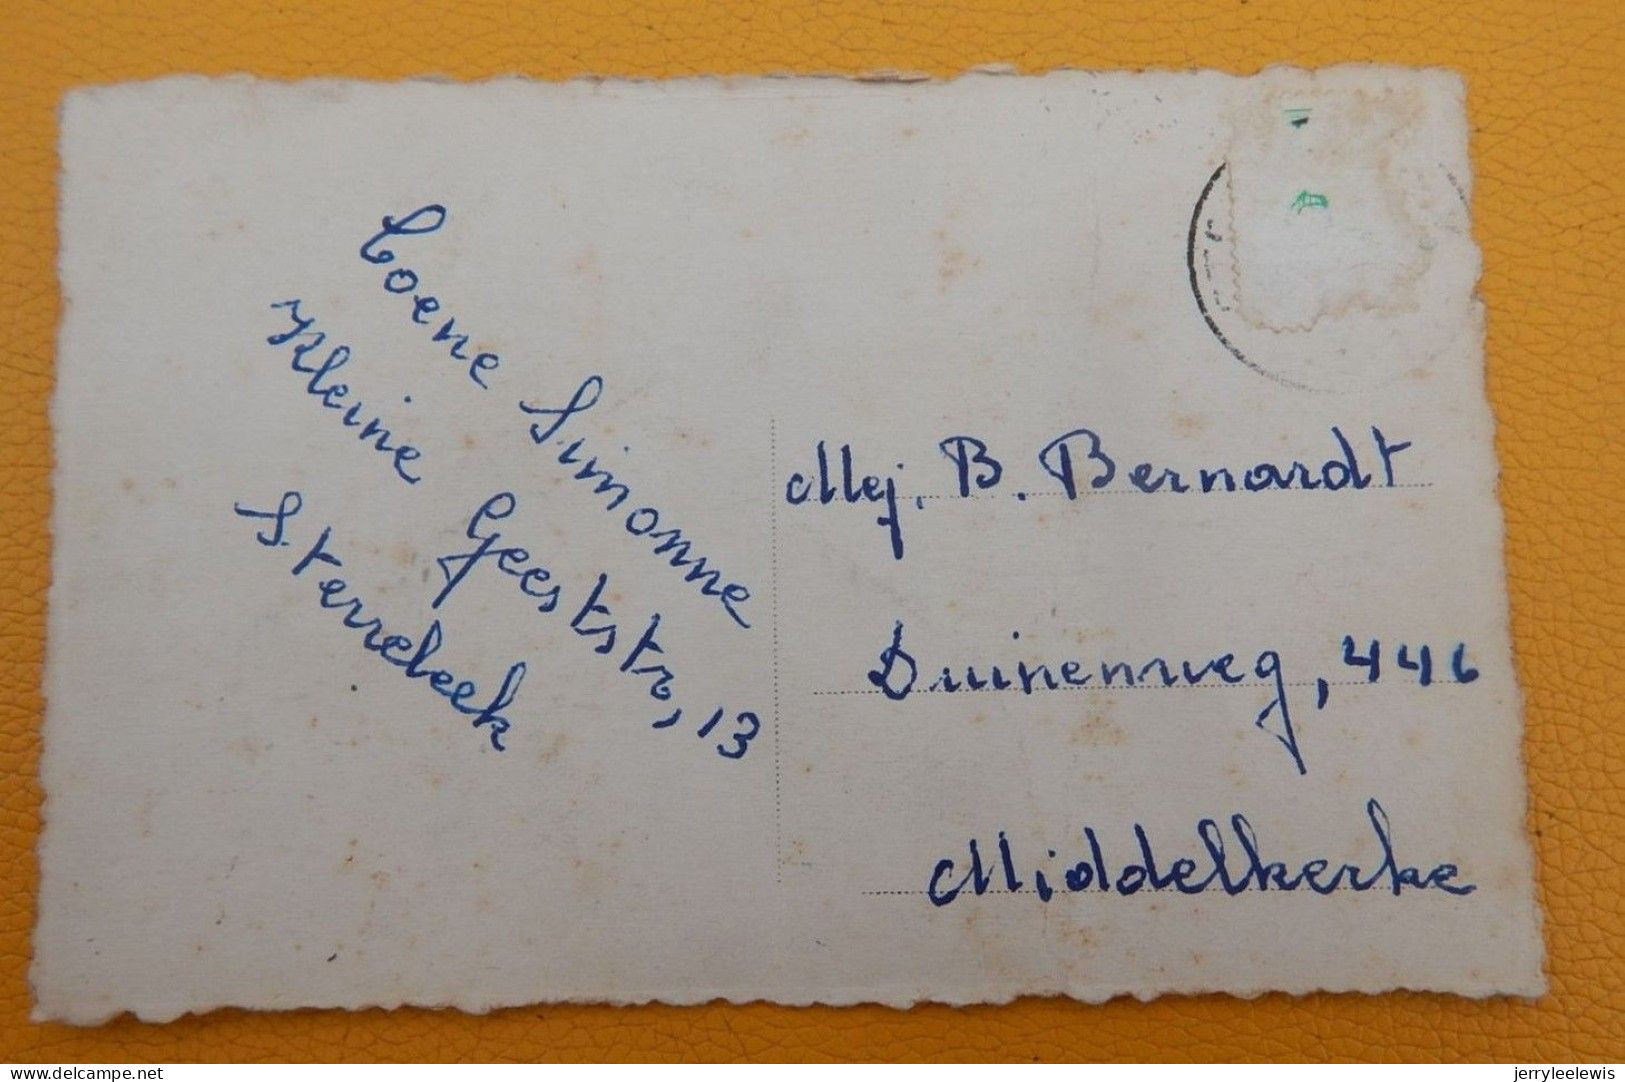 Coene Simonne
Kleine Geeststr, 13
Sterrebeek
Mej. B. Bernardt
Duinenweg, 446
Middelkerke
delcampe.net
jerryleelewis